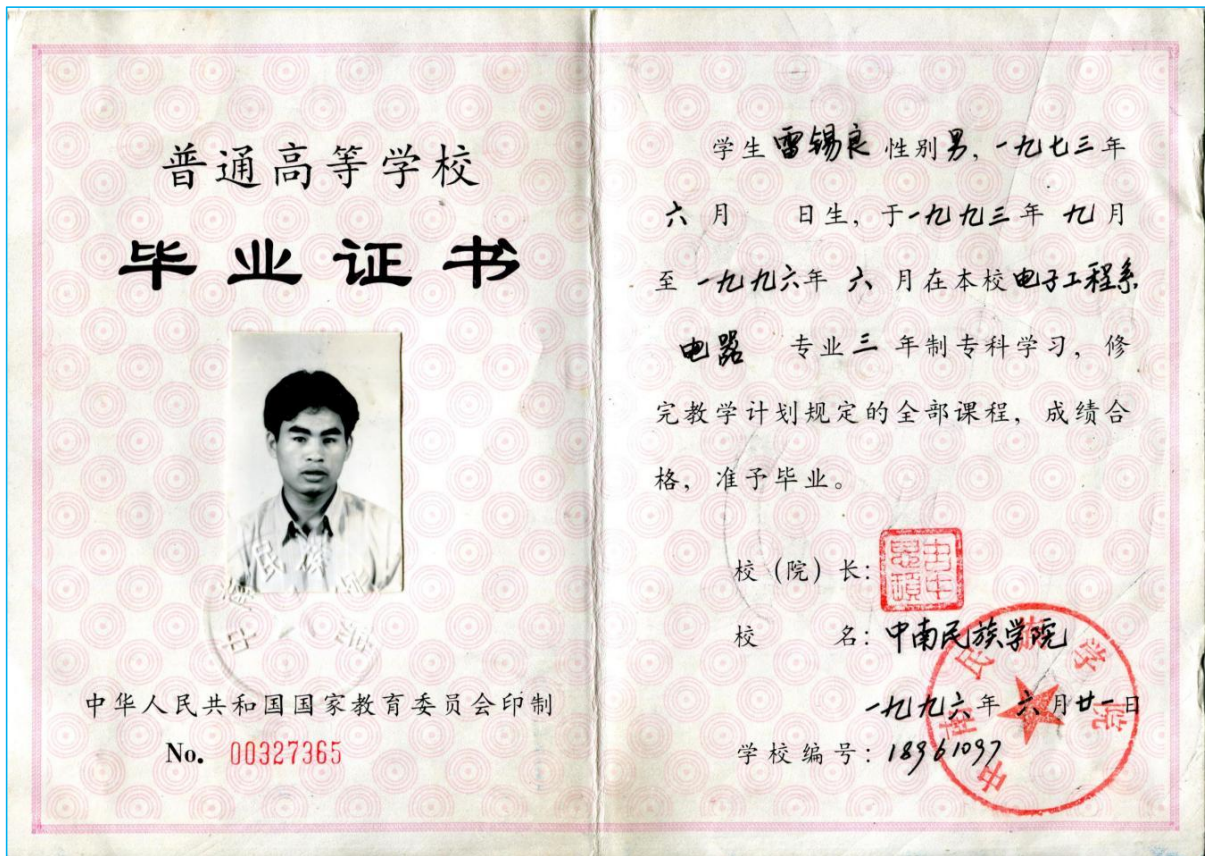 普通高等学校
毕业证书
中华人民共和国国家教育委员会印制
No. 00327365
学生雷锡良 性别男,一九七三年
六月 日生,于一九九三年 九月
至 一九九六年 六 月在本校电子工程系
电器 专业 三 年制专科学习,修
完教学计划规定的全部课程,成绩合
格,准予毕业。
校(院)长:
校 名:中南民族学院
一九九六年 六月廿一日
学校编号:18961097
中南民族学院